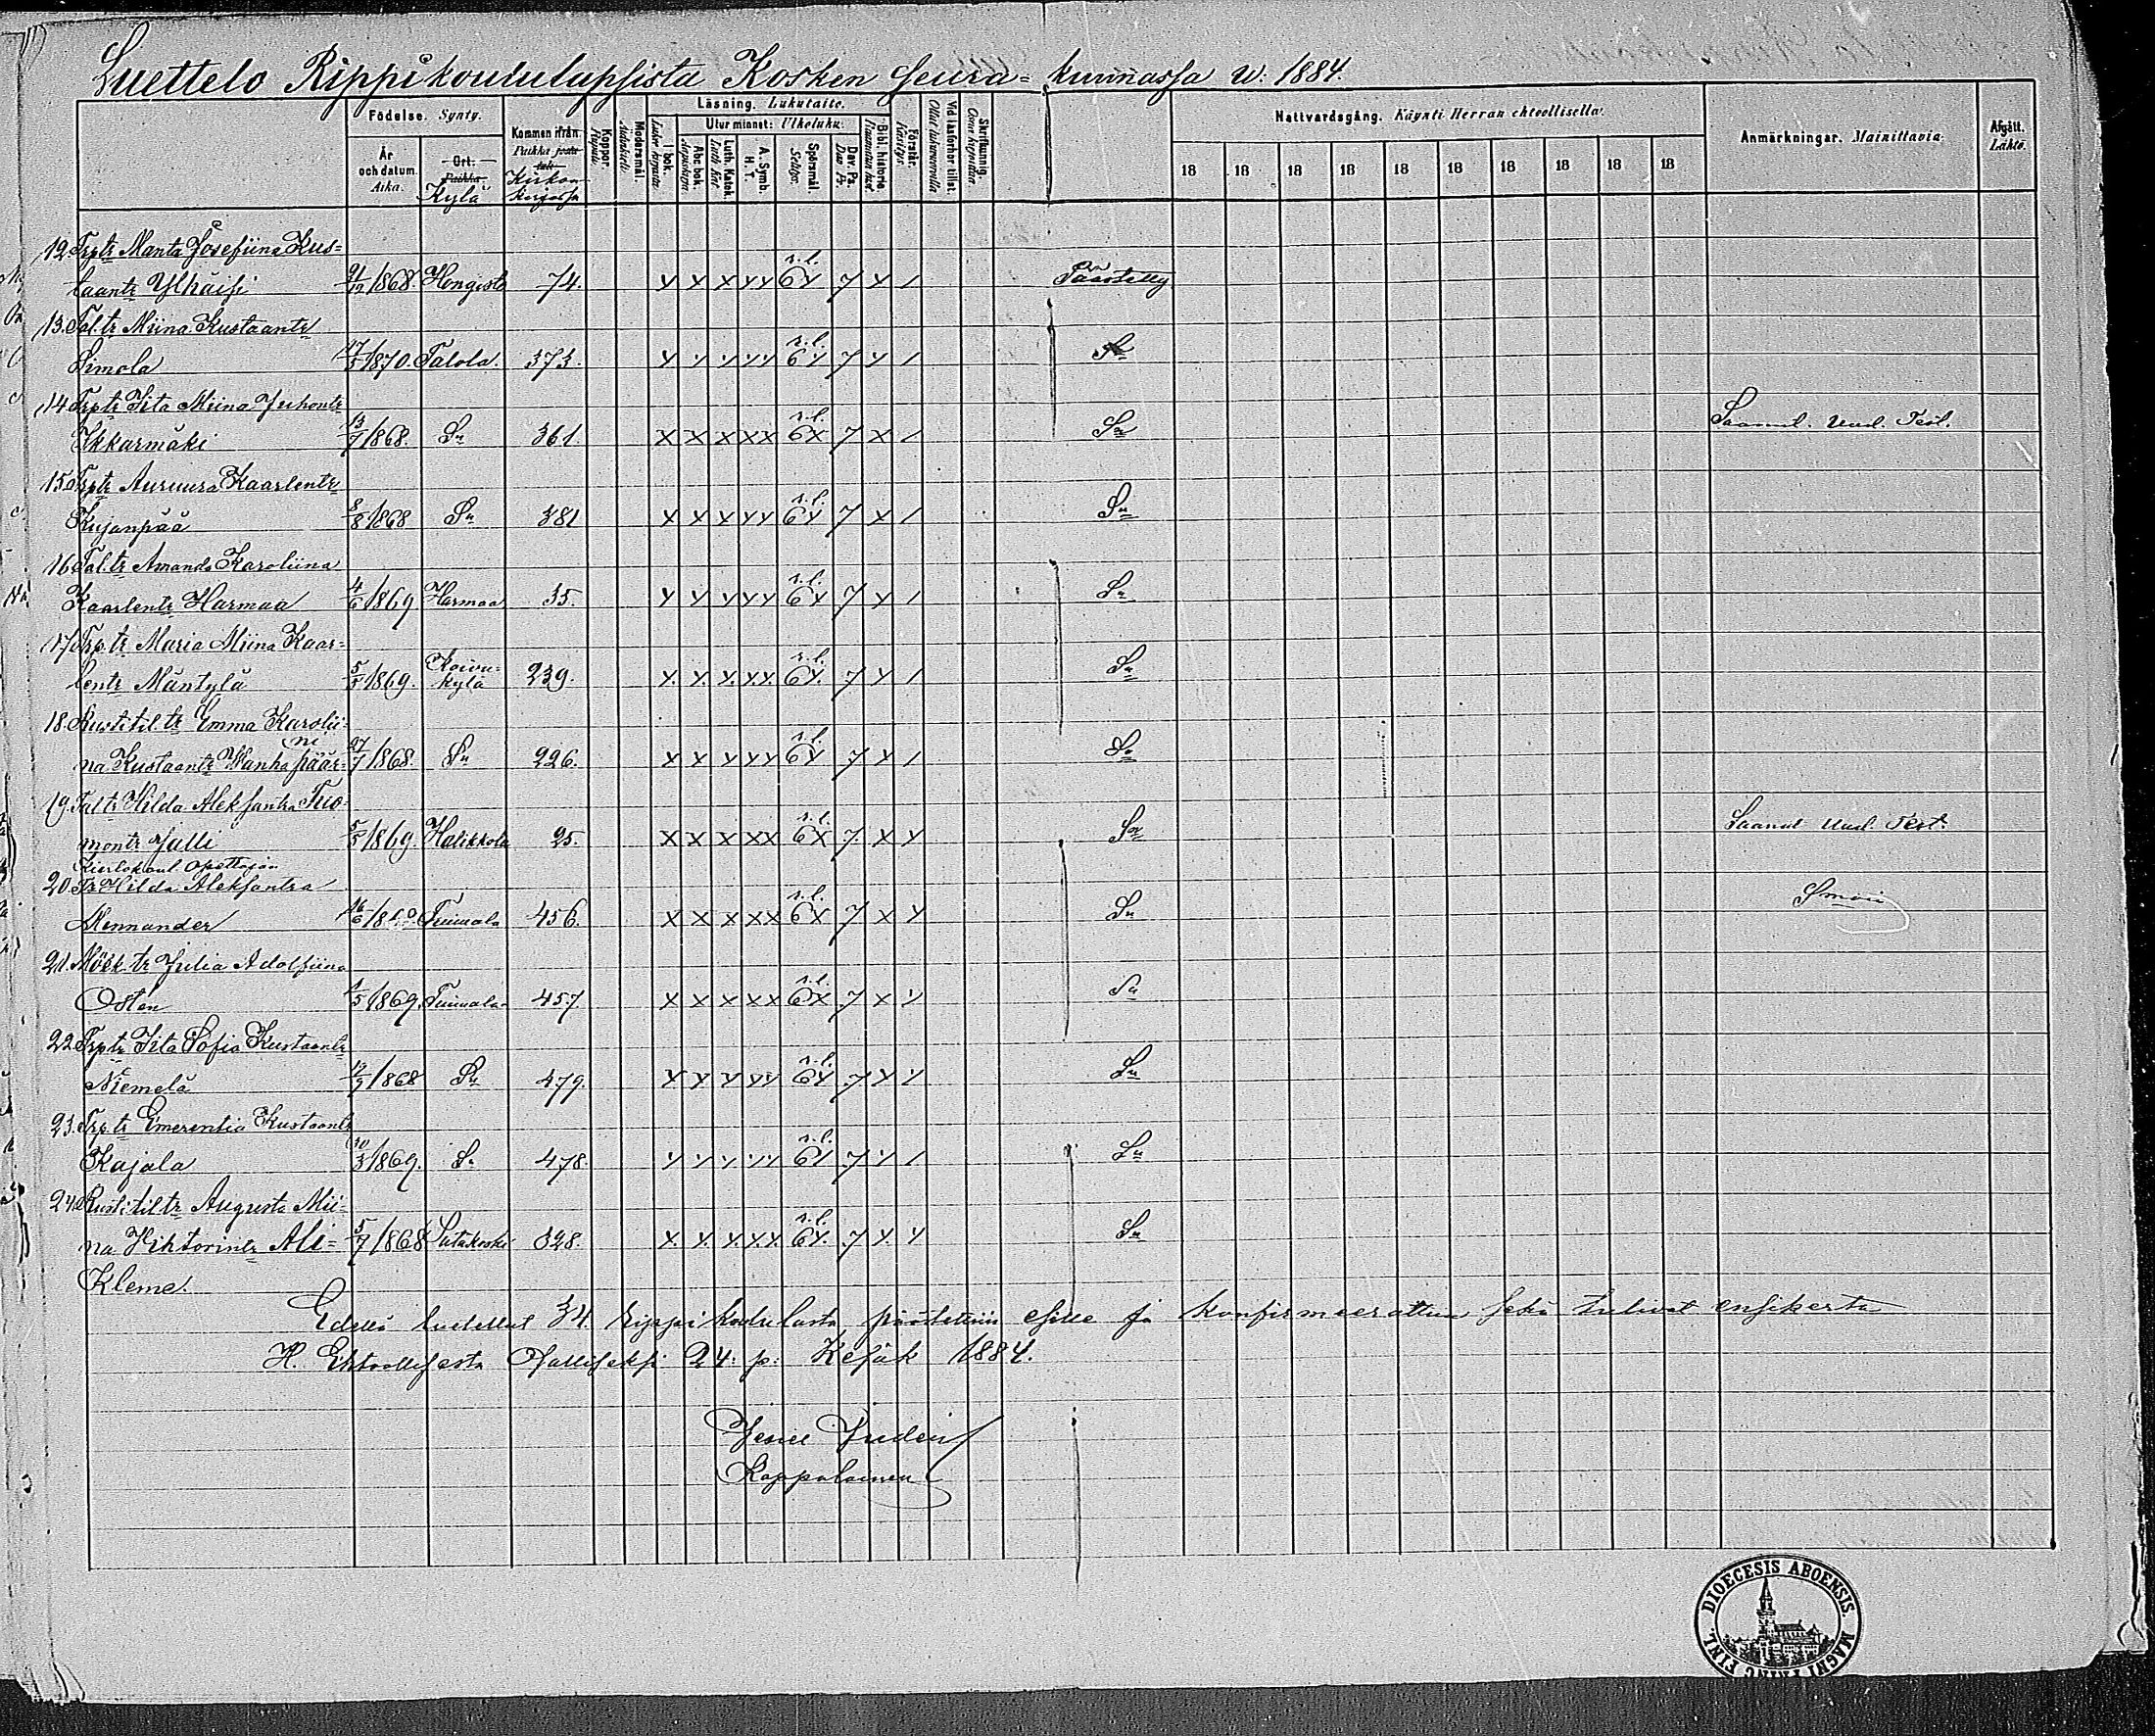 Luettelo Rippikoulutupsista Kosken Seura= kunnassa w: 1884.
Födelse. Synty.
År och datum. Aika.
Ort. Paikka Kylä
Kommen ifrån. Paikka josta tuli Kirkon Kirjassa
Koppor. Rupuli.
Modersmål. Äidinkieli.
Läsning. Lukutaito.
I bok.
Utur minnet: Ulkoluku.
Abc bok.
Luth. Katek.
A. Symb. H. T.
Spörsmål
Dav. Ps.
Bibl. historie.
Förstår. Käsitys.
Vid läsförhör tillst.
Skrifkunnig.
Nattvardsgång. Käynti Herran ehtoollisella.
18 18 18 18 18 18 18 18 18 18
Anmärkningar. Mainittavia.
Afgått. Lähtö.
12. Trp.tr Manta Josefiina Kus=
taantr Ylhäisi 9/12 1868. Hongisto 74. x x x x x r.l. 6x 7 x / Päästetty
13. Tal.tr Miina Kustaantr
Simola 17/5 1870. Talola. 373. x x x x x r.l. 6x 7 x / Sn
14. Trp.tr Iita Miina Juhontr
Ikkarmäki 13/7 1868. Sn 361. x x x x x r.l. 6x 7 x / Sn Saanut. Uud. Test.
15. Trp.tr Auruura Kaarlentr
Kujanpää 8/8 1868 Sn 381 x x x x x r.l. 6x 7 x / Sn
16. Tal.tr Amanda Karoliina
Kaarlentr Harmaa 4/6 1869 Harmaa 35. x x x x x r.l. 6x 7 x / Sn
17. Trp.tr Maria Miina Kaar=
lentr Mäntylä 5/5 1869. Koivu-kylä 239. x. x. x. x.x. r.l. 6x. 7 x / Sn
18. Rustitil.tr Emma Karolii=
na Kustaantr Wanhapäär=ni 27/7 1868. Sn 226. x x x x x r.l. 6x 7 x / Sn
19. Tal.tr Hilda Aleksantra Tuo=
montr Jalli 5/5 1869. Halikkola 25. x x x x x r.l. 6x 7. x x Sn Saanut Uud. Test.
Kiertokoul Opettajan
20. Tr Hilda Aleksantra
Mennander Tuimala 456. x x x x x r.l. 6x 7 x x Sn
21. Mök.tr Julia Adolfiina
Osten 1/5 1869. Tuimala 457. x x x x x r.l. 6x 7 x x Sn
22. Trp.tr Iita Sofia Kustaantr
Niemelä 1868 Sn 479. x x x x x r.l. 6x 7 x x Sn
23. Trp.tr Emerentia Kustaantr
Kajala 10/3 1869. Sn 478. x x x x x r.l. 6x 7 x / Sn
24. Rustitil.tr Augusta Mii=
na Wihtorintr Ali= 5/7 1868 Satakoski 328. x. x. x. x.x r.l. 6x. 7 x. x Sn
Kleme.
Edellä luetellut 34 rippikoululasta päästettiin esille ja konfirmeerattiin sekä tulivat ensikerta
H. Ehtoollisesta osallisiksi 24: p: Kesäk 1884.
Kappalainen
DIOECESIS ABOENSIS. MAGNI PRINC. FINL.